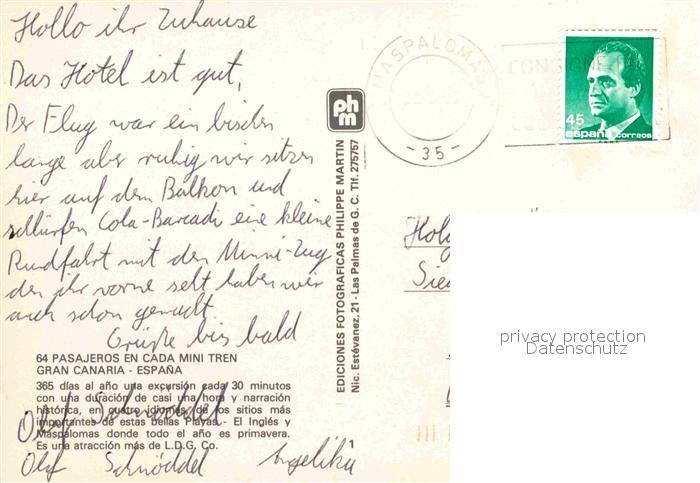 Hollo ihr Zuhause
Das Hotel ist gut,
Der Flug war ein bischen
lange aber ruhig wir sitzen
hier auf dem Balkon und
schlürfen Cola-Barcadi eine kleine
Rundfahrt mit den Minni-Zug
den ihr vorne seht haben wir
auch schon gemacht.
Grüße bis bald
64 PASAJEROS EN CADA MINI TREN
GRAN CANARIA - ESPAÑA
365 días al año una excursión cada 30 minutos
con una duración de casi una hora y narración
histórica, en cuatro idiomas, de los sitios más
importantes de estas bellas Playas - El Inglés y
Maspalomas donde todo el año es primavera.
Es una atracción más de L.D.G. Co.
Olaf Schnöddel
Olaf Schnöddel Angelika
1
phm
EDICIONES FOTOGRAFICAS PHILIPPE MARTIN
Nic. Estévanez, 21 - Las Palmas de G. C. Tlf. 275757
MASPALOMAS
- 35 -
CONSIGNE
45
españa correos
Holg
Sie
privacy protection
Datenschutz